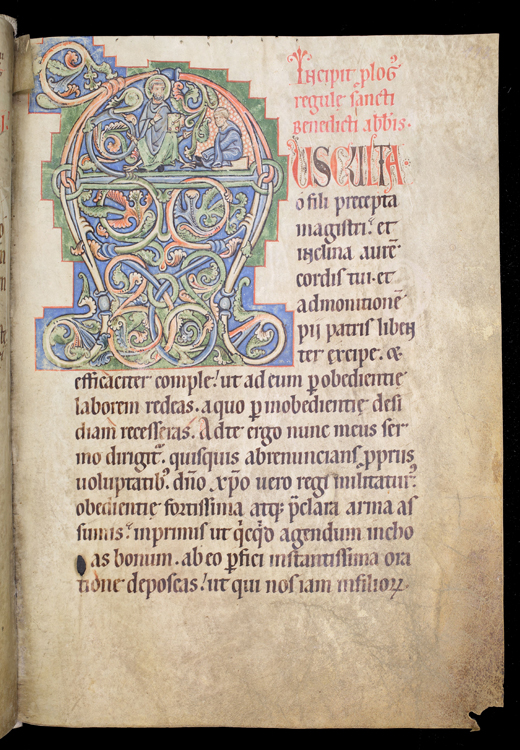 Incipit ꝓlogꝰ
regulę sancti
Benedicti abbis.
AUSCULTA
o fili precepta
magistri. et
inclina aurē
cordis tui. et
admonitionē
pii patris liben
ter excipe. &
efficaciter comple. ut ad eum ꝑ obedientię
laborem redeas. a quo ꝑ inobedientię desi
diam recesseras. Ad te ergo nunc meus ser
mo dirigit̄. quisquis abrenuncians ꝓpriis
uoluptatibꝰ. dn̄o xp̄o uero regi militaturꝰ.
obedientię fortissima atq; p̄clara arma as
sumis. inprimis ut qicqid agendum incho
as bonum. ab eo ꝑfici instantissima ora
tione deposcas. ut qui nos iam in filioꝝ.